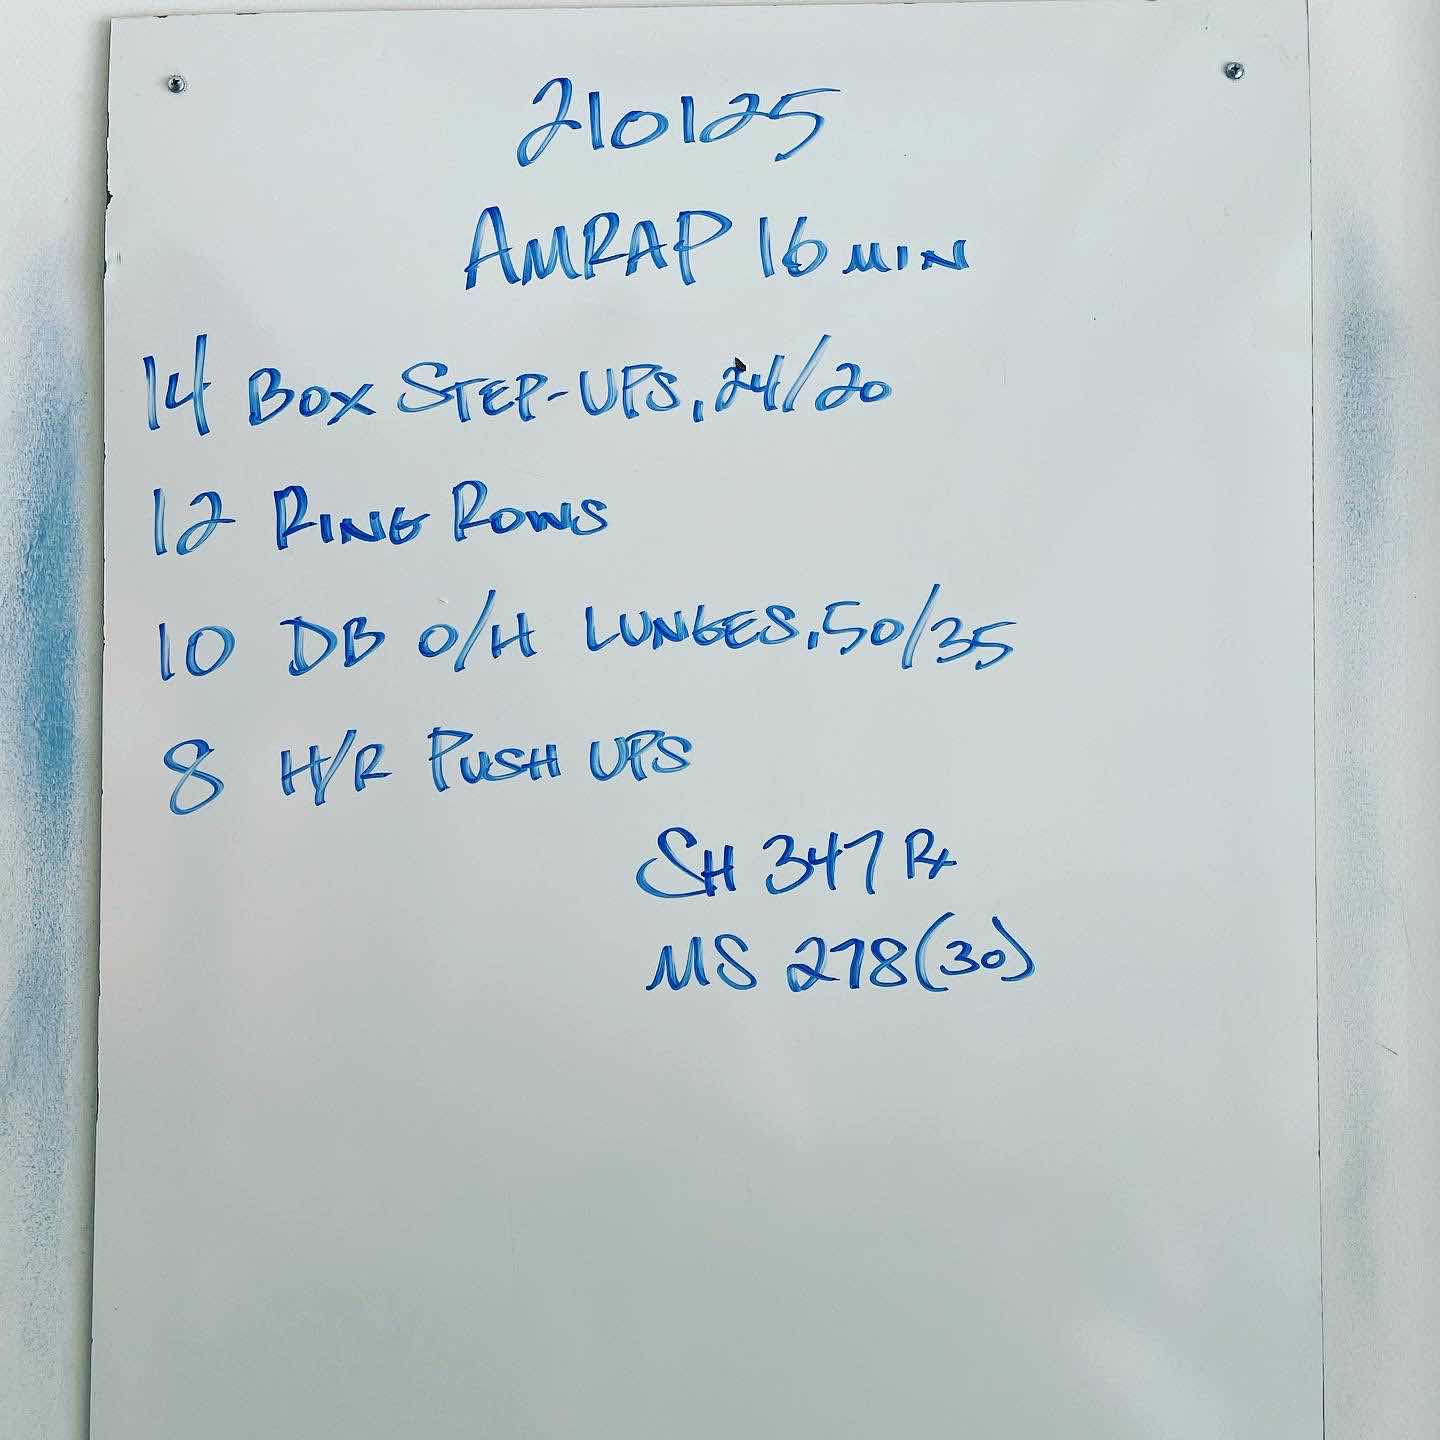 210125
AMRAP 16 MIN
14 BOX STEP-UPS, 24/20
12 RING ROWS
10 DB O/H LUNGES, 50/35
8 H/R PUSH UPS
SH 347 Rx
MS 278 (30)